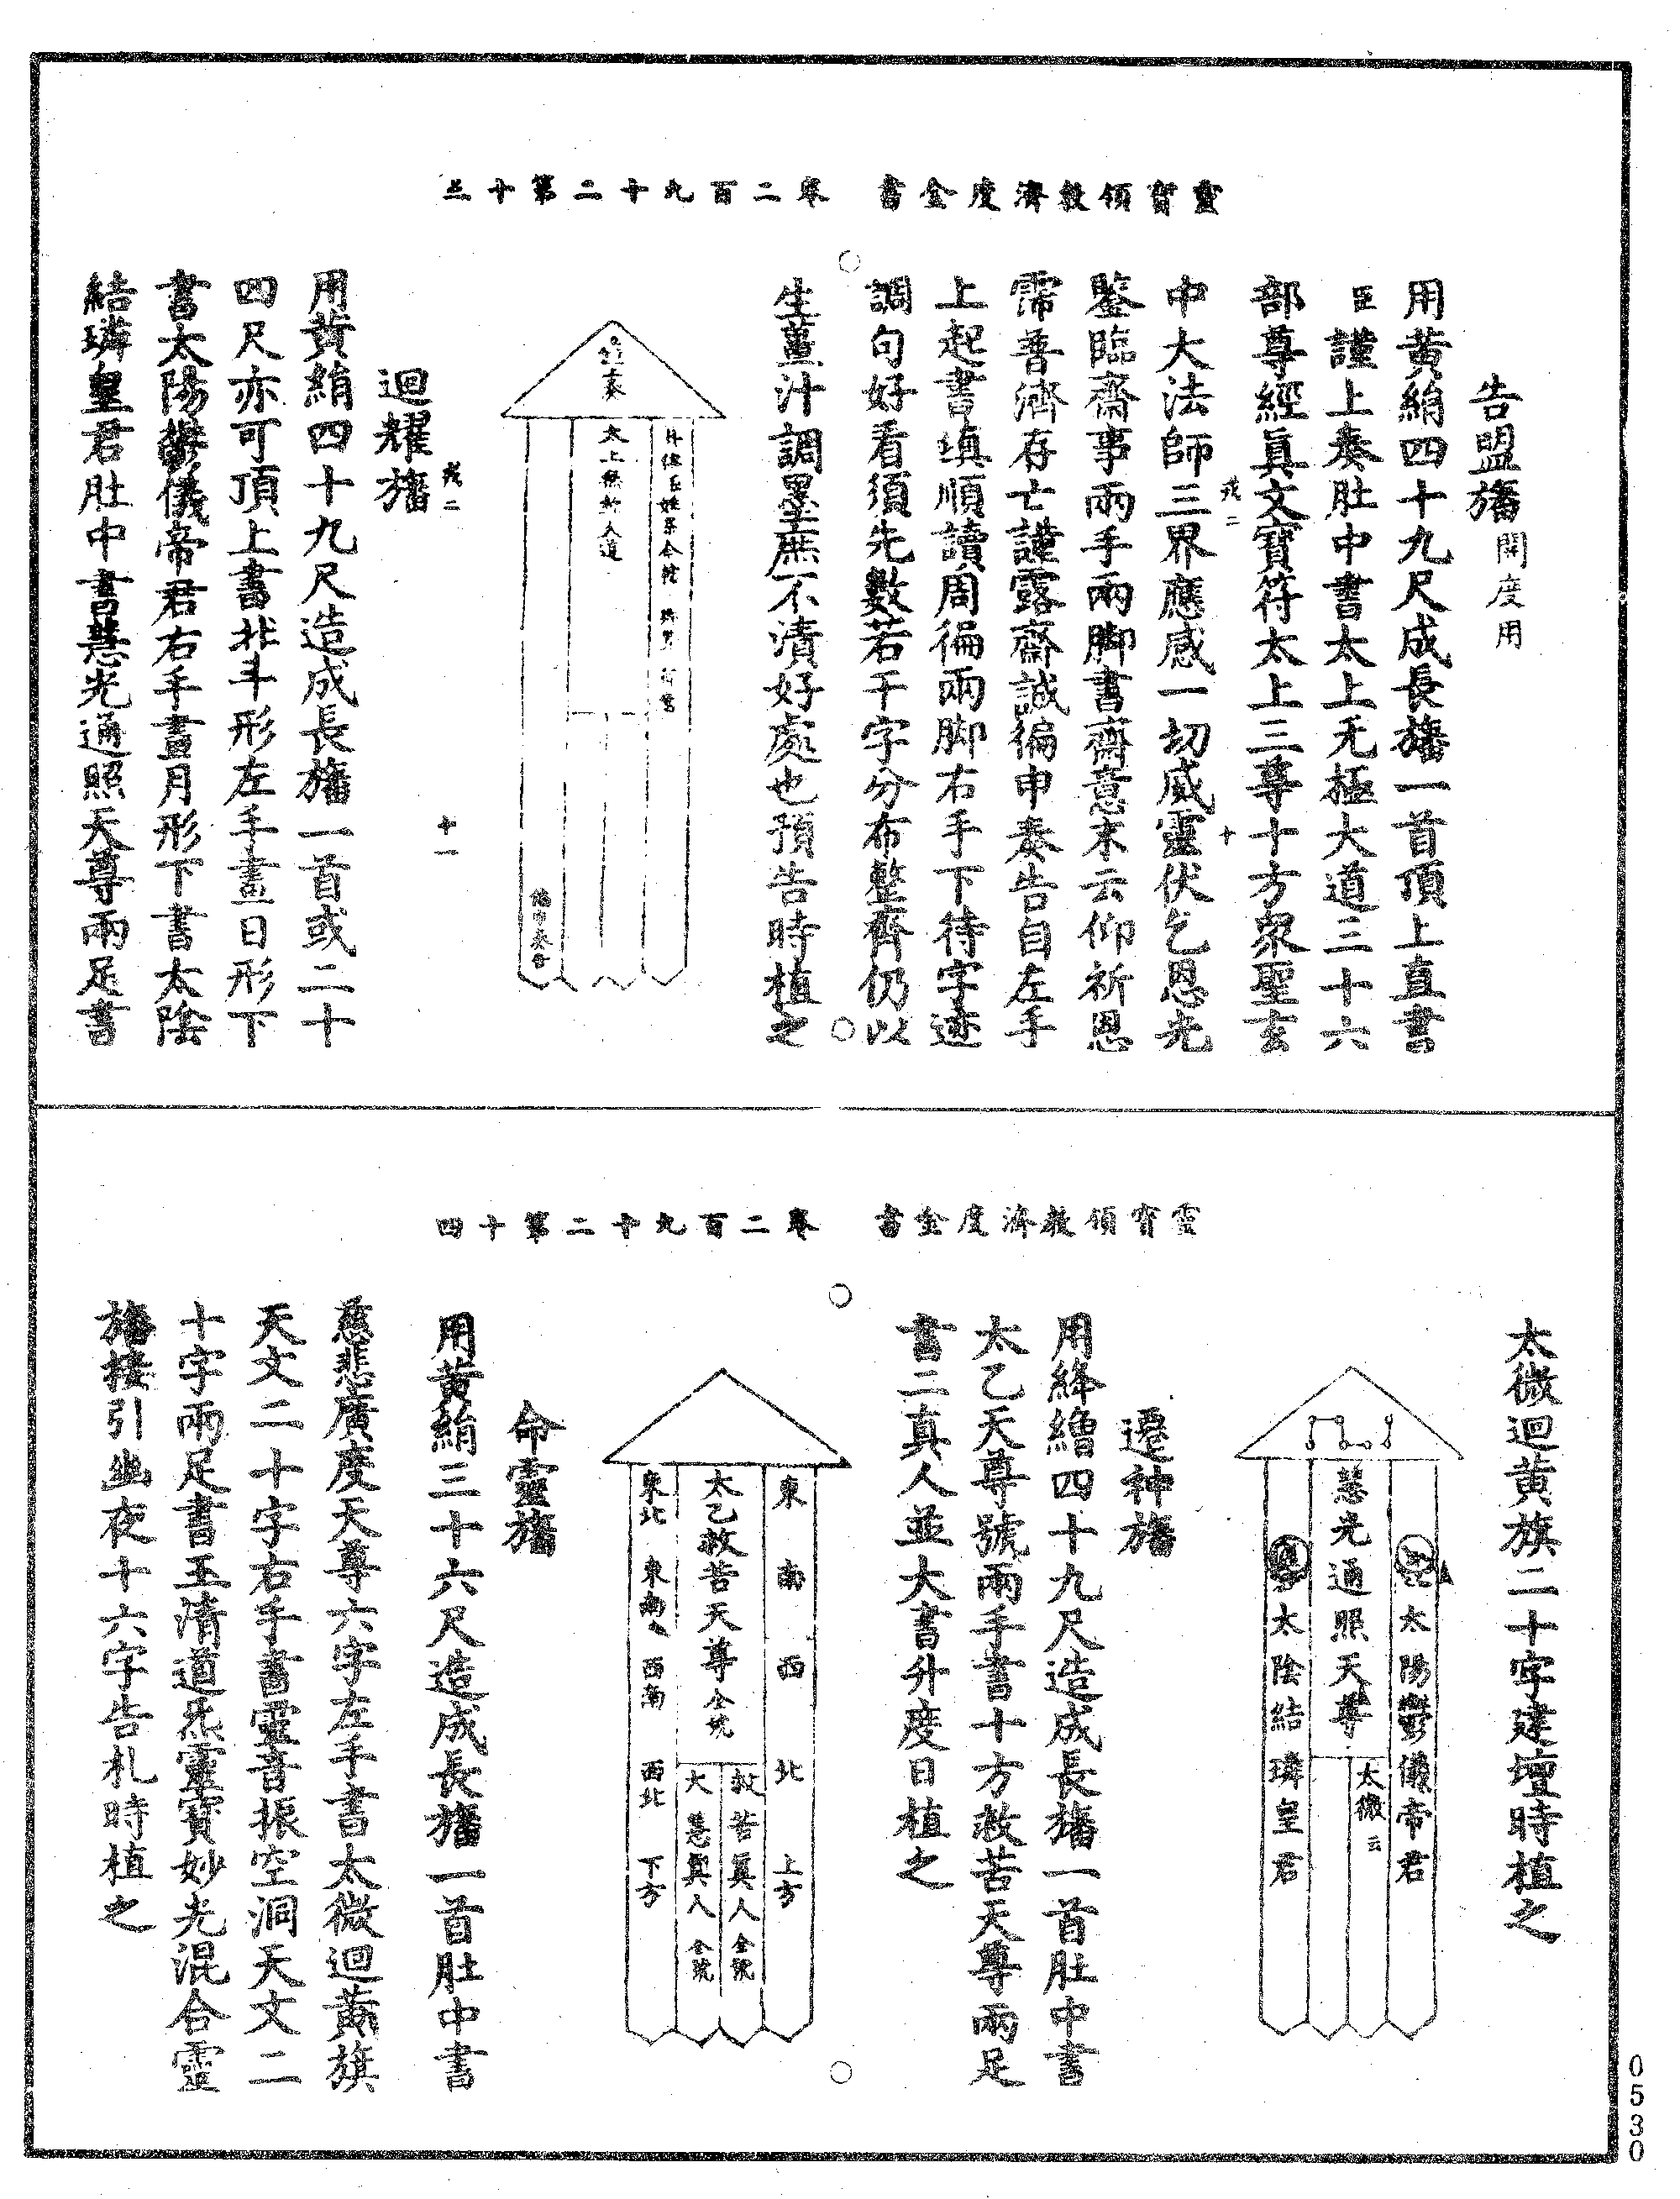 靈寶領教濟度金書 卷二百九十二第十三
告盟旛開度用
用黄絹四十九尺成長旛一首頂上直書
臣謹上奏肚中書太上无極大道三十六
部尊經眞文寶符太上三尊十方衆聖玄
中大法師三界應感一切威靈伏乞恩光
戎二 十
鑒臨齋事兩手兩脚書齋意末云仰祈恩
霈普濟存亡謹露齋誠徧申奏告自左手
上起書填順讀周徧兩脚右手下待字迹
調句好看須先數若干字分布整齊仍以
生薑汁調墨庶不漬好處也預告時植之
臣謹上奏
太上無極大道
戎二 十一
迴耀旛
用黄絹四十九尺造成長旛一首或二十
四尺亦可頂上書北斗形左手畫日形下
書太陽鬱儀帝君右手畫月形下書太陰
結璘皇君肚中書慧光通照天尊兩足書
靈寶領教濟度金書 卷二百九十二第十四
太微迴黄旗二十字建壇時植之
太陽鬱儀帝君
慧光通照天尊
太微云
太陰結璘皇君
遷神旛
用絳繒四十九尺造成長旛一首肚中書
太乙天尊號兩手書十方救苦天尊兩足
書二真人並大書升度日植之
東 南 西 北 上方
太乙救苦天尊全號
救苦眞人全號
大慧眞人全號
東北 東南 西南 西北 下方
命靈旛
用黄絹三十六尺造成長旛一首肚中書
慈悲廣度天尊六字左手書太微迴黄旗
天文二十字右手書靈音振空洞天文二
十字兩足書玉清道炁靈寶妙光混合靈
旛接引幽夜十六字告札時植之
0530